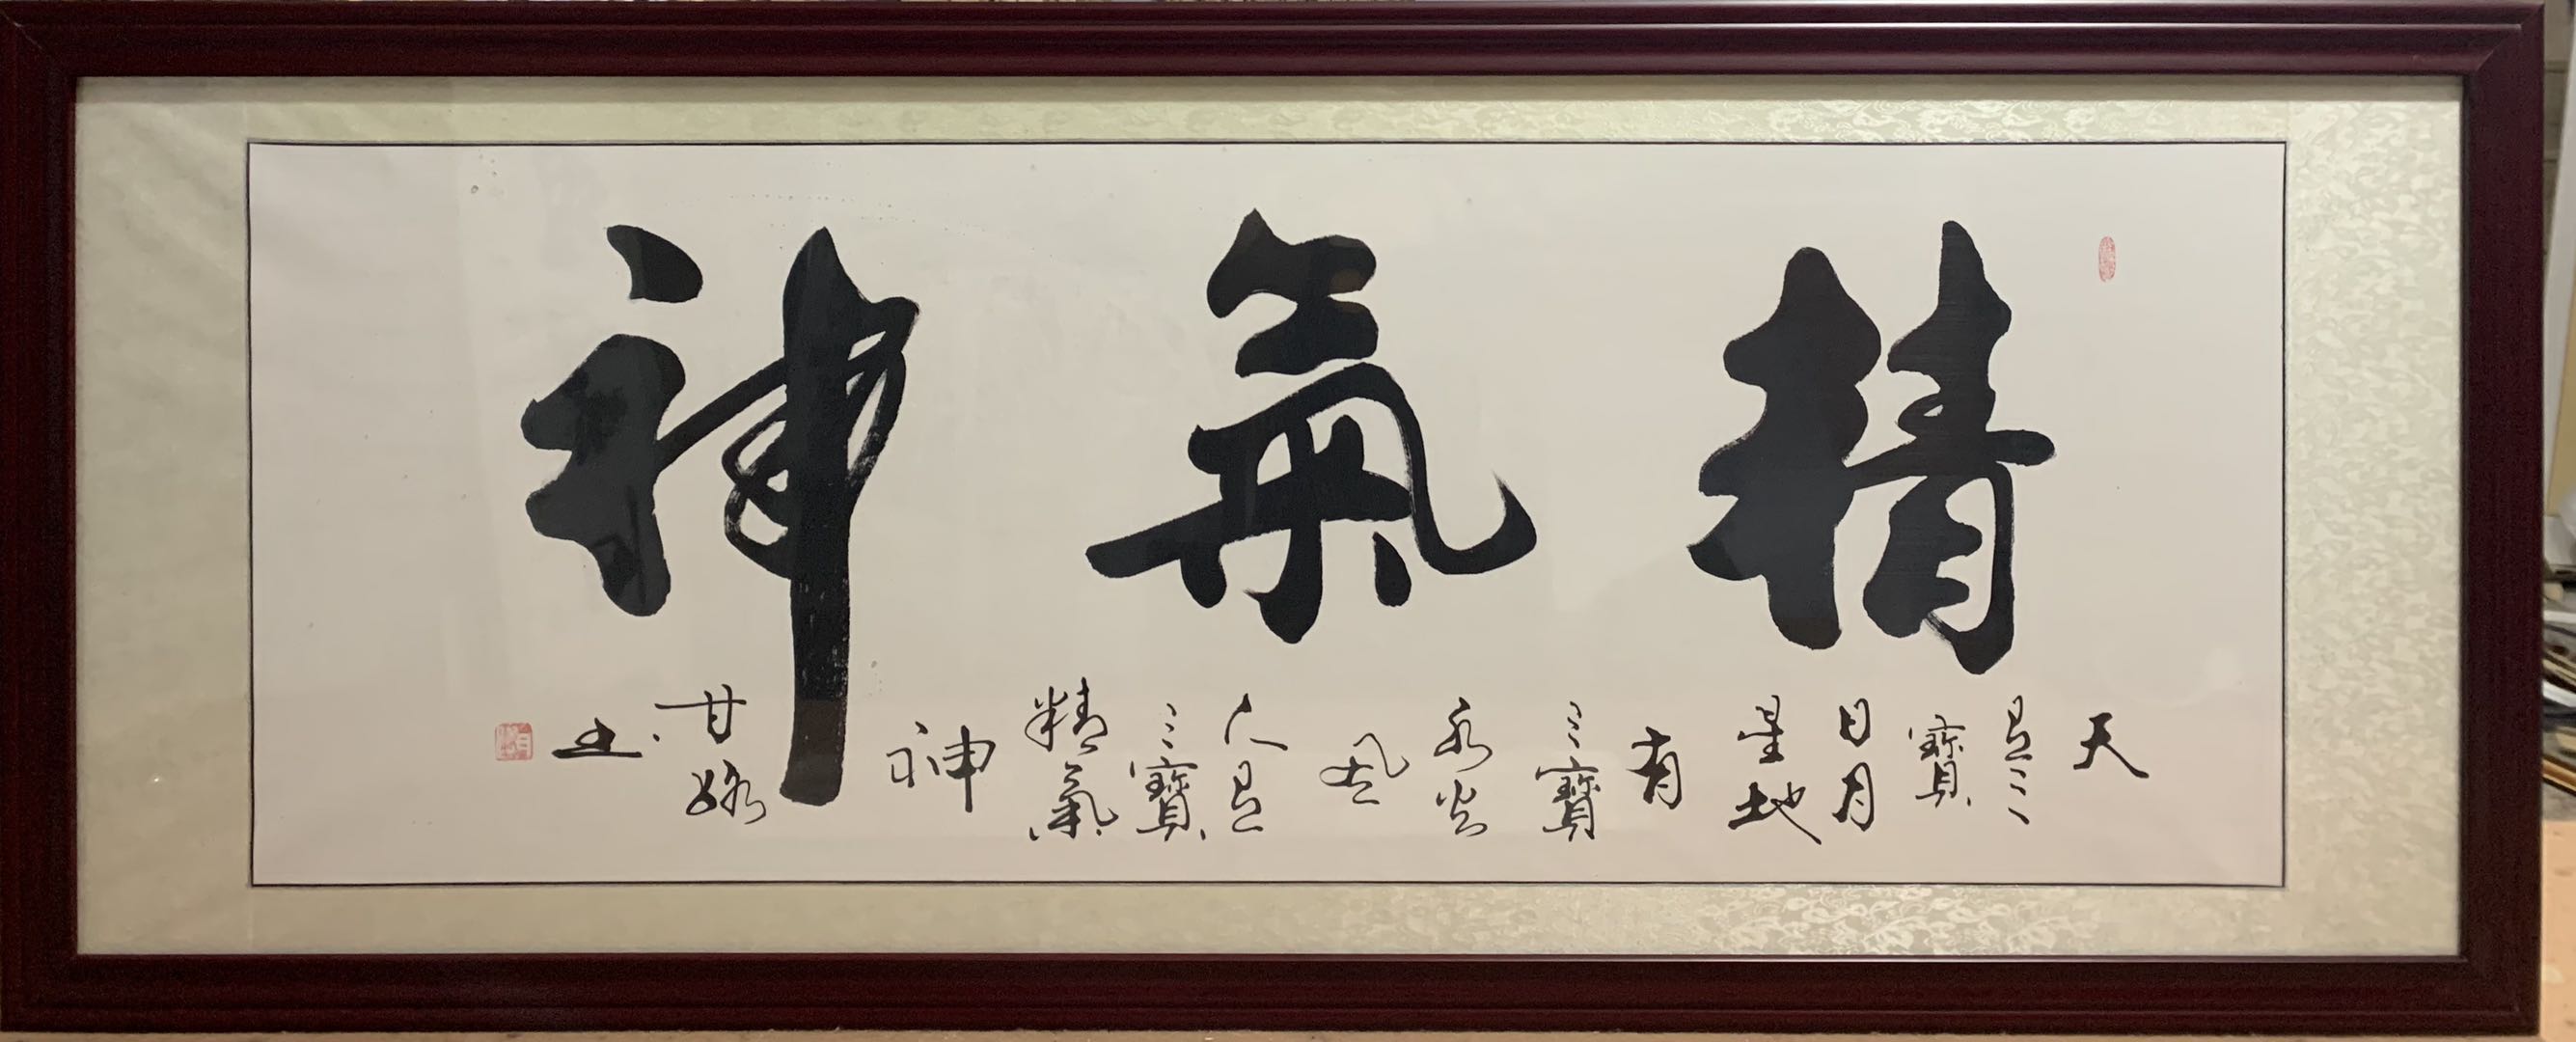 精氣神
天
具三
寶
日月
星地
有
三寶
水火
風
人具
三寶
精氣
神
甘